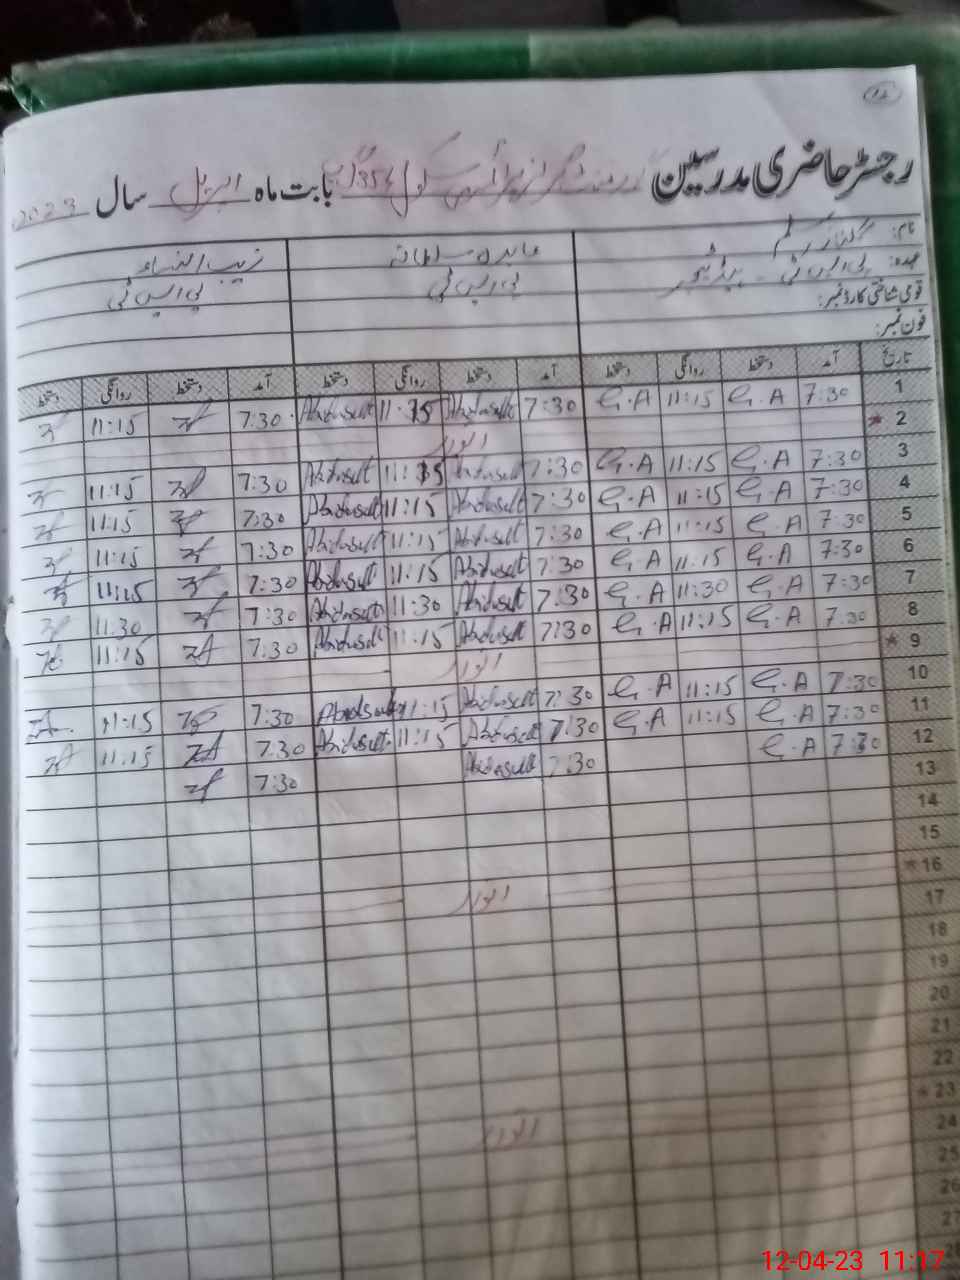 12
رجسٹر حاضری مدرسین گورنمنٹ گرلز پرائمری سکول 356 گ ب بابت ماہ اپریل سال 2023
نام: عابدہ سلطانہ زیب النساء
عہدہ: پی ایس ٹی ۔ ہیڈ ٹیچر پی ایس ٹی پی ایس ٹی
قومی شناختی کارڈ نمبر:
فون نمبر:
تاریخ آمد دستخط روانگی دستخط آمد دستخط روانگی دستخط آمد دستخط روانگی دستخط
1 7:30 G.A 11:15 G.A 7:30 Abidasult 11:15 Abidasult 7:30 11:15
* 2 اتوار
3 7:30 G.A 11:15 G.A 7:30 Abidasult 11:15 Abidasult 7:30 11:15
4 7:30 G.A 11:15 G.A 7:30 Abidasult 11:15 Abidasult 7:30 11:15
5 7:30 G.A 11:15 G.A 7:30 Abidasult 11:15 Abidasult 7:30 11:15
6 7:30 G.A 11:15 G.A 7:30 Abidasult 11:15 Abidasult 7:30 11:15
7 7:30 G.A 11:30 G.A 7:30 Abidasult 11:30 Abidasult 7:30 11:30
8 7:30 G.A 11:15 G.A 7:30 Abidasult 11:15 Abidasult 7:30 11:15
* 9 اتوار
10 7:30 G.A 11:15 G.A 7:30 Abidasult 11:15 Abidasult 7:30 11:15
11 7:30 G.A 11:15 G.A 7:30 Abidasult 11:15 Abidasult 7:30 11:15
12 7:30 G.A 7:30 Abidasult 7:30
13
14
15
* 16 اتوار
17
18
19
20
21
22
* 23 اتوار
24
25
26
27
12-04-23 11:17